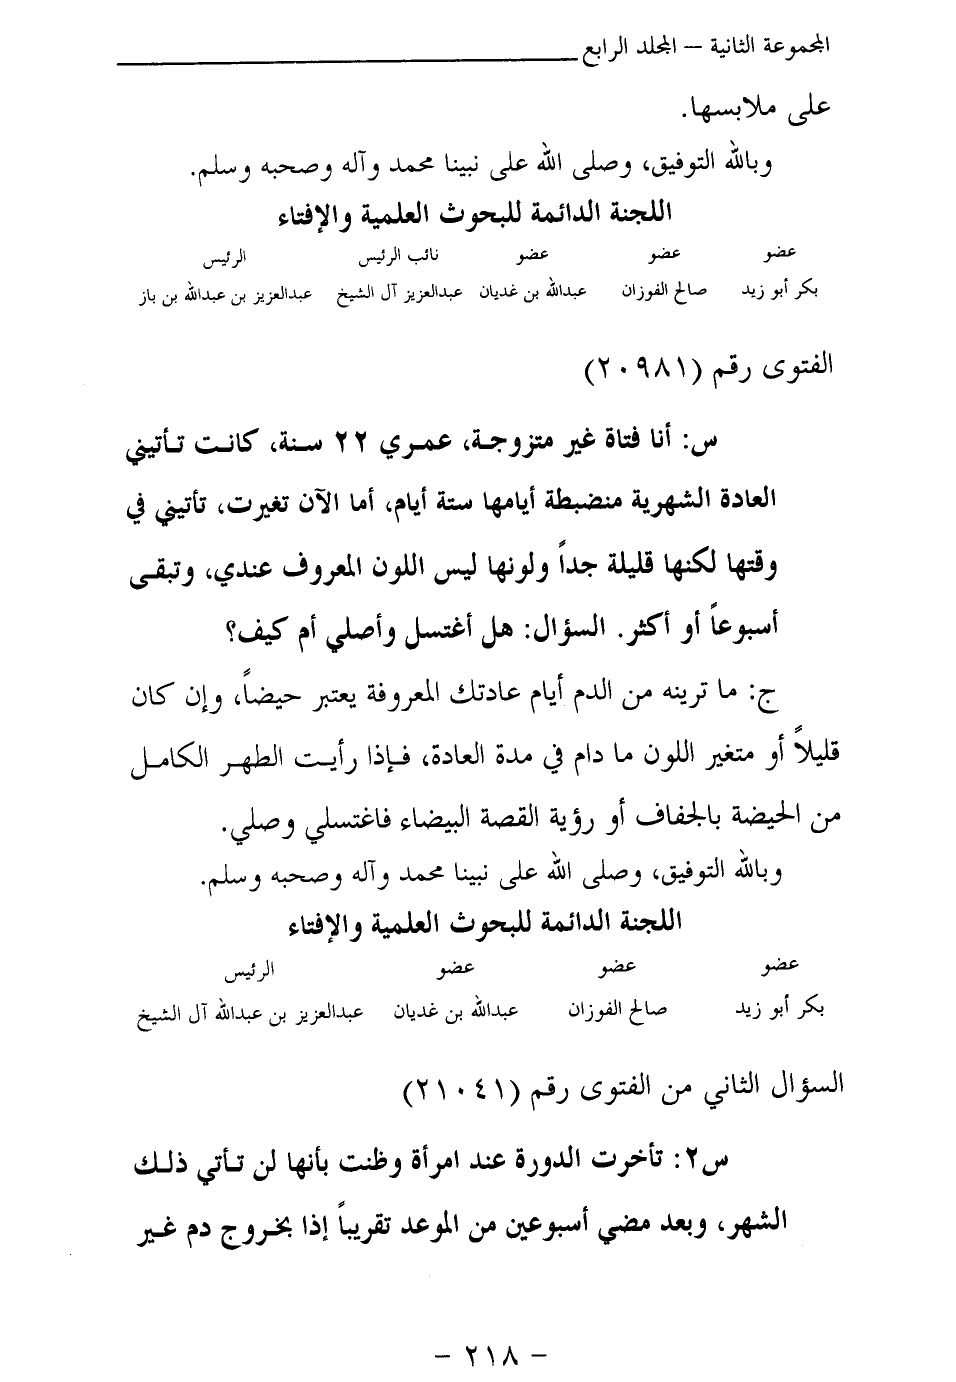 المجموعة الثانية – المجلد الرابع
على ملابسها.
وبالله التوفيق، وصلى الله على نبينا محمد وآله وصحبه وسلم.
اللجنة الدائمة للبحوث العلمية والإفتاء
عضو عضو عضو نائب الرئيس الرئيس
بكر أبو زيد صالح الفوزان عبدالله بن غديان عبدالعزيز آل الشيخ عبدالعزيز بن عبدالله بن باز
الفتوى رقم (٢٠٩٨١)
س: أنا فتاة غير متزوجة، عمري ٢٢ سنة، كانت تأتيني
العادة الشهرية منضبطة أيامها ستة أيام، أما الآن تغيرت، تأتيني في
وقتها لكنها قليلة جداً ولونها ليس اللون المعروف عندي، وتبقى
أسبوعاً أو أكثر. السؤال: هل أغتسل وأصلي أم كيف؟
ج: ما ترينه من الدم أيام عادتك المعروفة يعتبر حيضاً، وإن كان
قليلاً أو متغير اللون ما دام في مدة العادة، فإذا رأيت الطهر الكامل
من الحيضة بالجفاف أو رؤية القصة البيضاء فاغتسلي وصلي.
وبالله التوفيق، وصلى الله على نبينا محمد وآله وصحبه وسلم.
اللجنة الدائمة للبحوث العلمية والإفتاء
عضو عضو عضو الرئيس
بكر أبو زيد صالح الفوزان عبدالله بن غديان عبدالعزيز بن عبدالله آل الشيخ
السؤال الثاني من الفتوى رقم (٢١٠٤١)
س٢: تأخرت الدورة عند امرأة وظنت بأنها لن تأتي ذلك
الشهر، وبعد مضي أسبوعين من الموعد تقريباً إذا بخروج دم غير
- ٢١٨ -